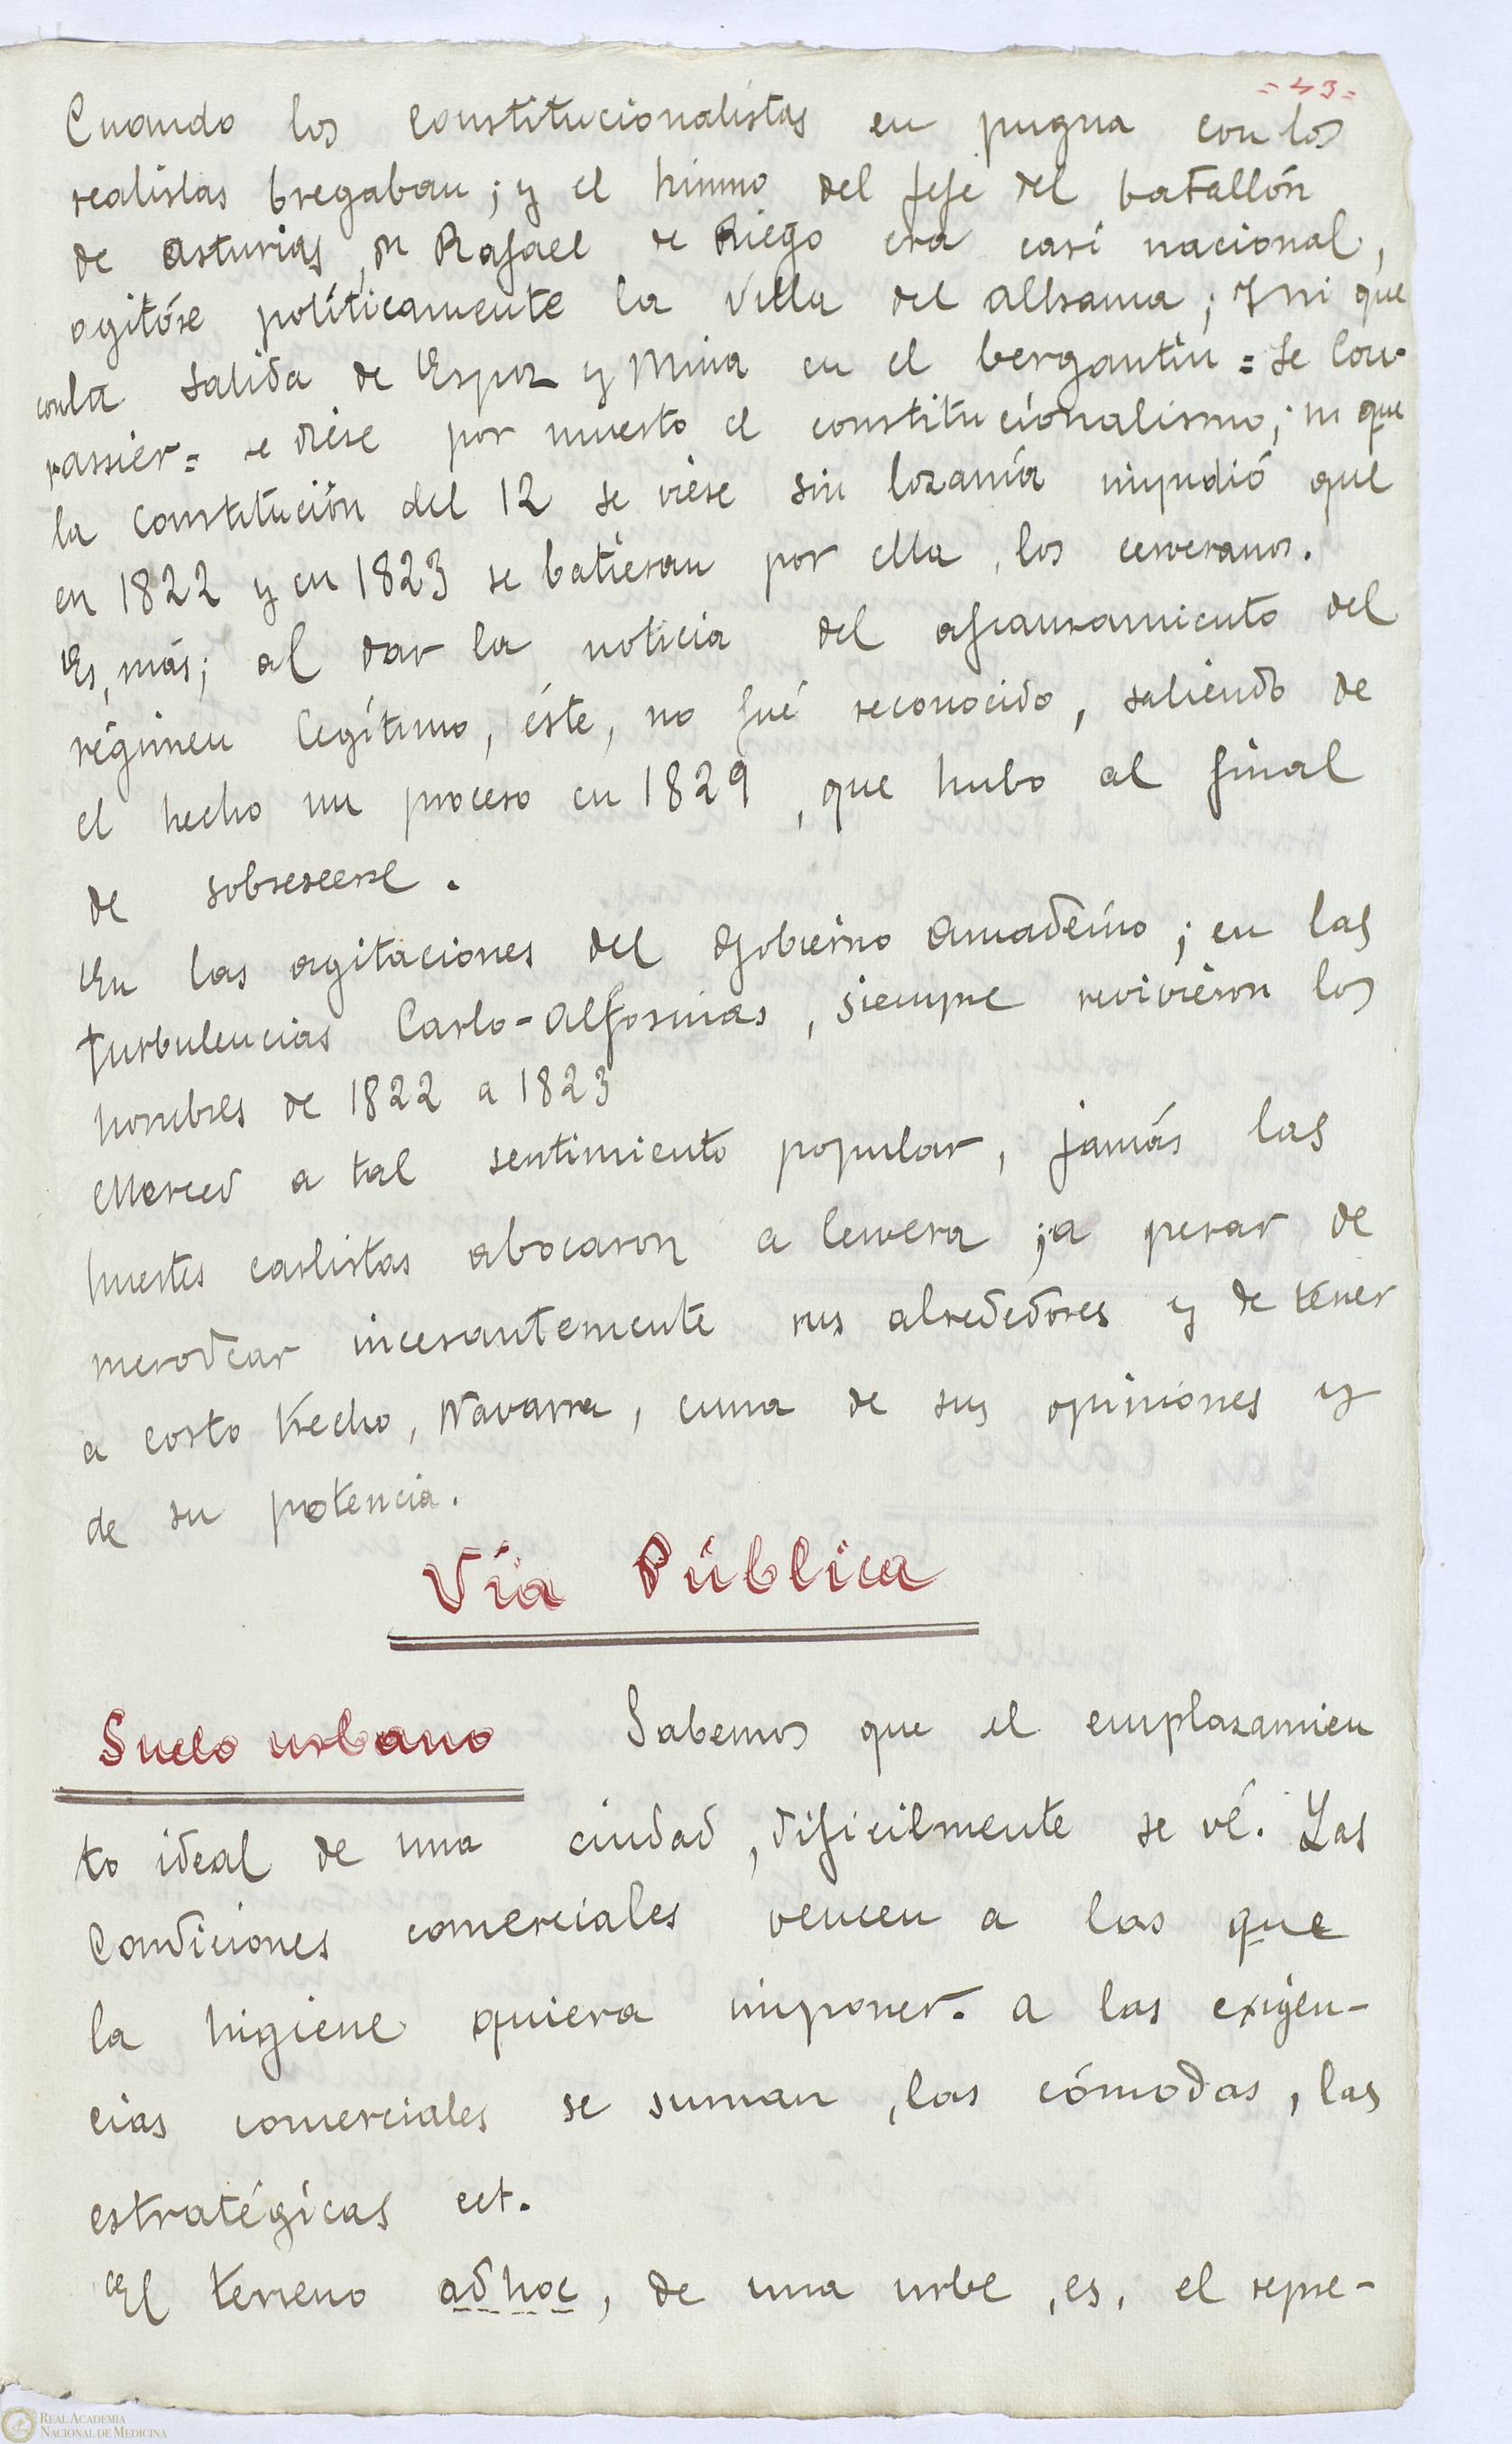 = 43 =
Cuando los constitucionalistas en pugna con los
realistas bregaban; y el himno del jefe del batallón
de asturias, Dn Rafael de Riego era casi nacional,
agitóse políticamente la villa del Alhama; y ni que
con la salida de Espoz y Mina en el bergantín = le Cou-
rassier = se diese por muerto el constitucionalismo; ni que
la Constitución del 12 se viese sin lozanía impidió que
en 1822 y en 1823 se batieran por ella, los cerveranos.
Es, más; al dar la noticia del afianzamiento del
régimen legítimo, éste, no fué reconocido, saliendo de
el hecho un proceso en 1829, que hubo al final
de sobreseerse.
En las agitaciones del Gobierno Amadeíno; en las
turbulencias Carlo-Alfosinas, siempre revivieron los
hombres de 1822 a 1823
Merced a tal sentimiento popular, jamás las
huestes carlistas abocaron a Cervera; a pesar de
merodear incesantemente sus alrededores y de tener
a corto trecho, Navarra, cuna de sus opiniones y
de su potencia.
Vía Pública
Suelo urbano Sabemos que el emplazamien
to ideal de una ciudad, dificilmente se vé. Las
Condiciones comerciales vencen a las que
la higiene quiera imponer. a las exigen-
cias comerciales se suman, las cómodas, las
estratégicas ect.
El terreno ad hoc, de una urbe, es, el repre-
REAL ACADEMIA
NACIONAL DE MEDICINA